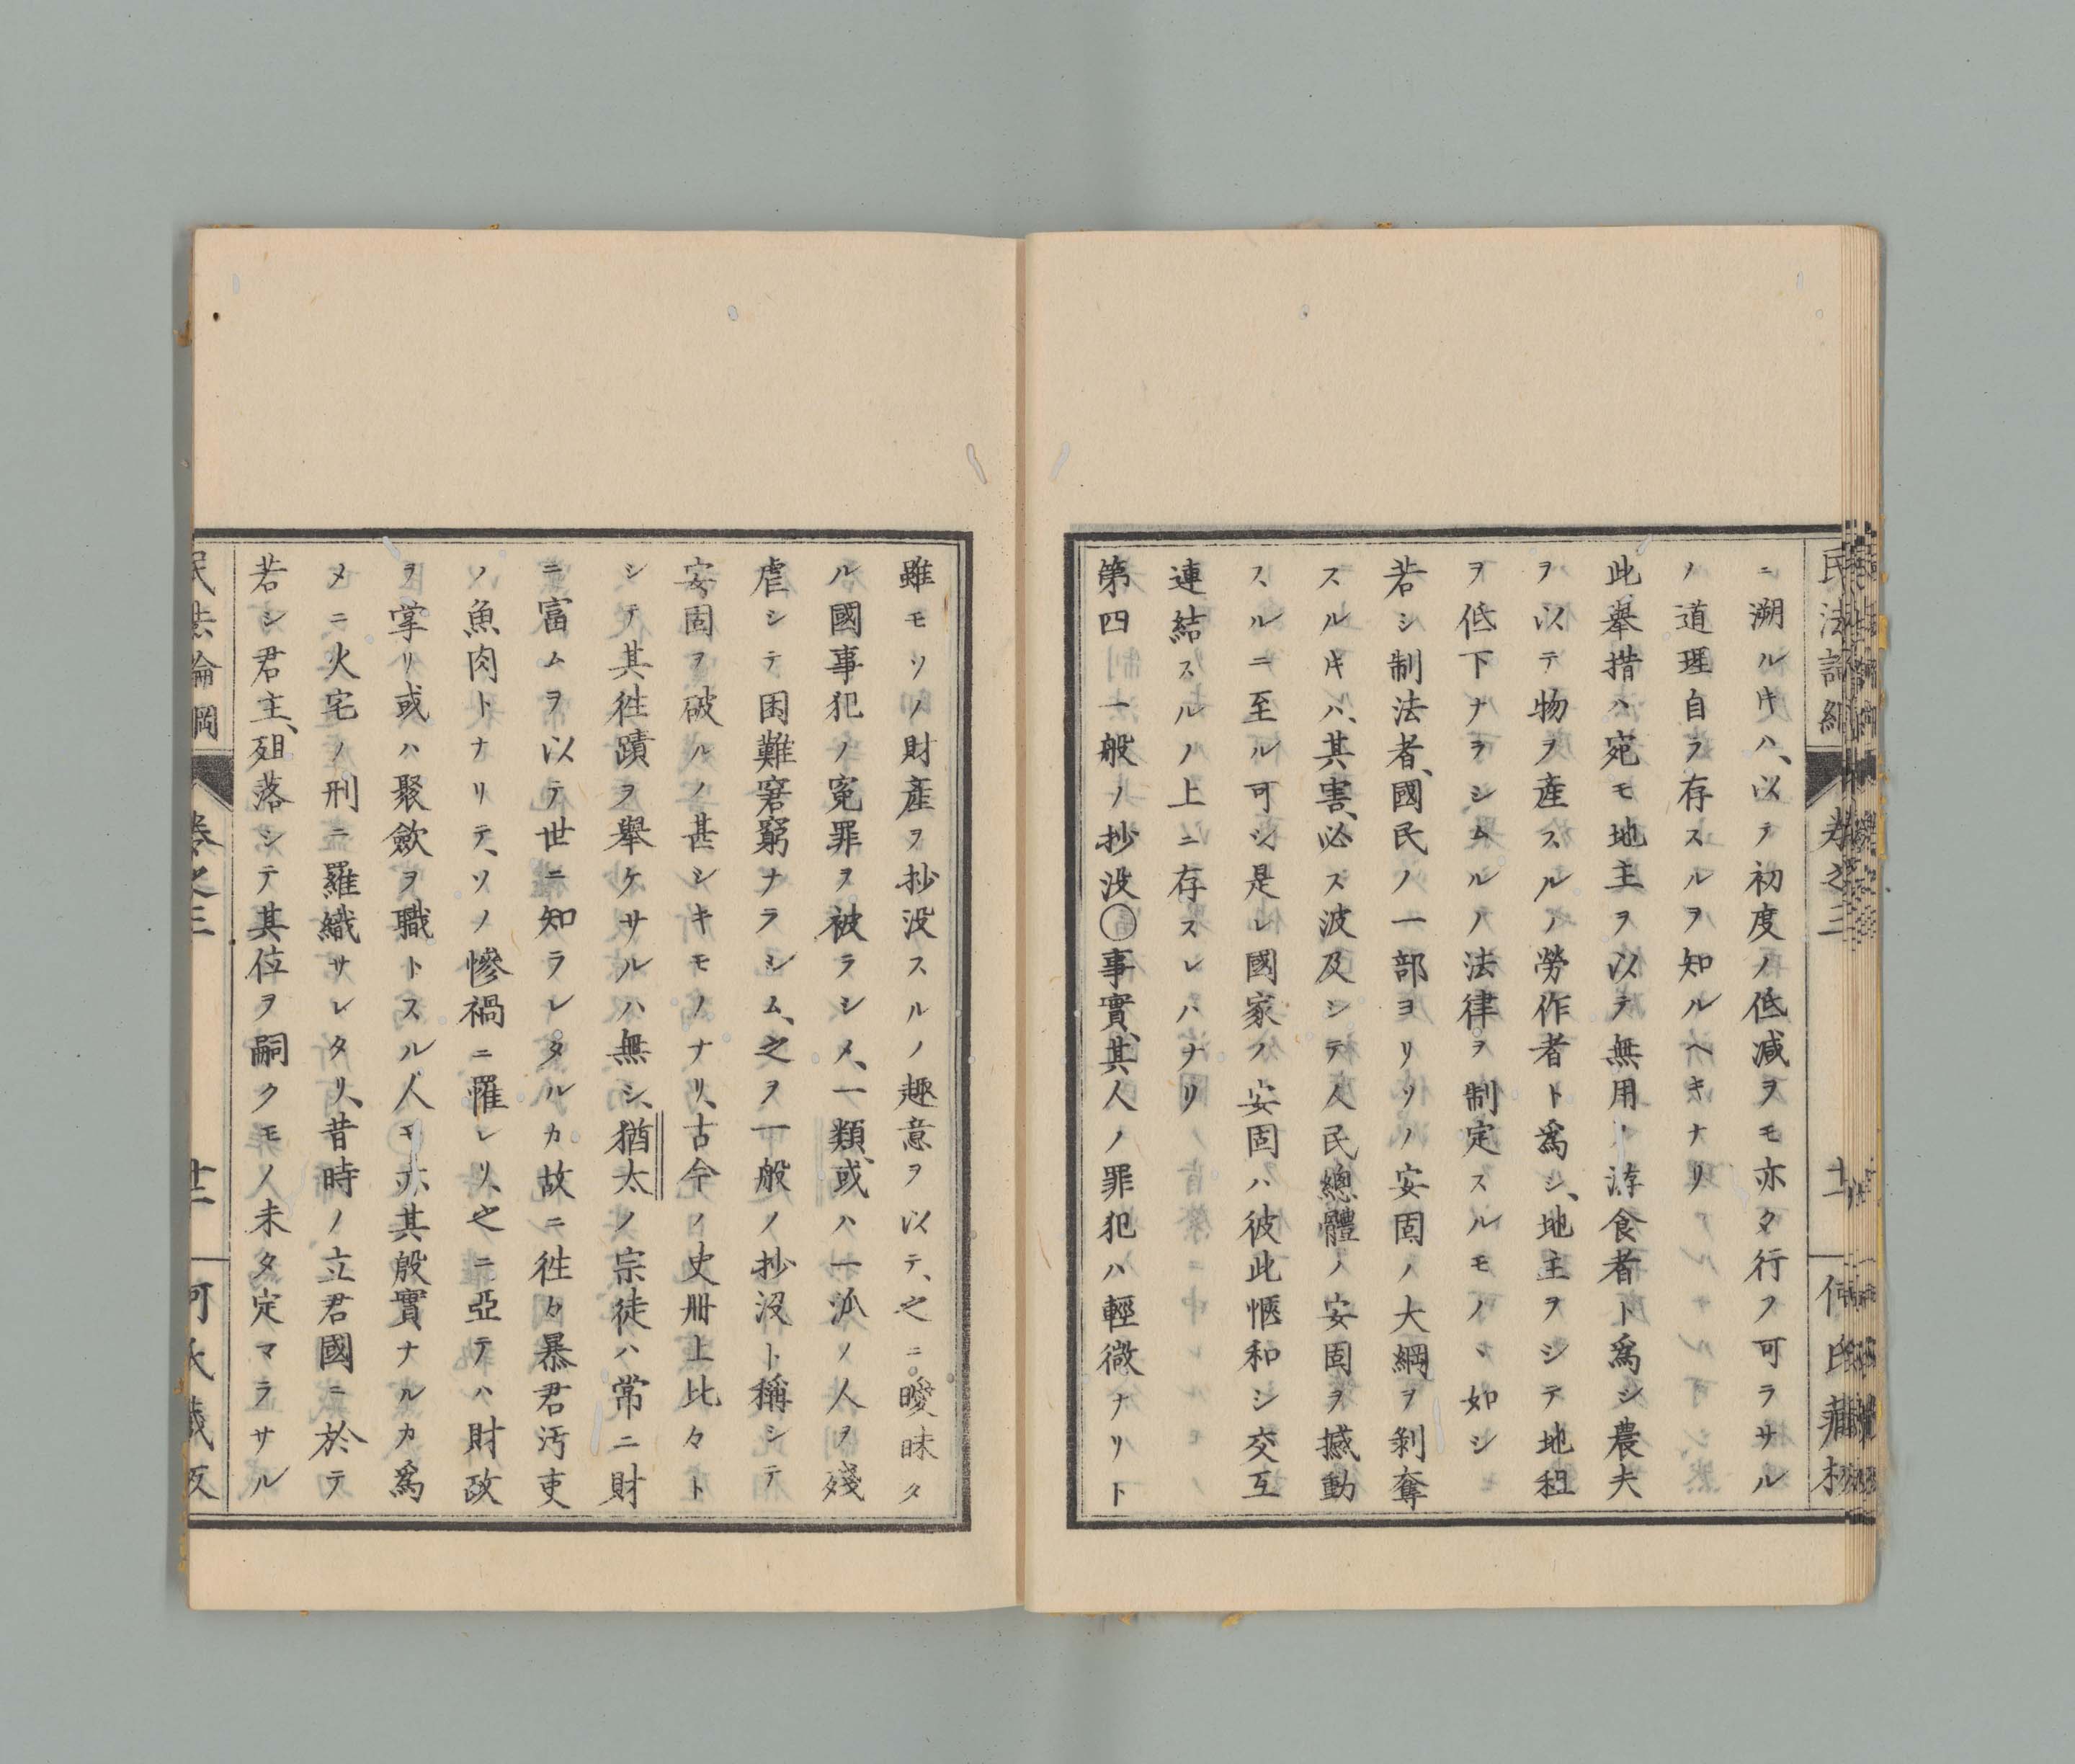 民法論綱 卷之三 何氏藏板
ニ溯ルキハ、以テ初度ノ低減ヲモ亦タ行フ可ラサル
ノ道理自ラ存スルヲ知ルヘキナリ
此擧措ハ宛モ地主ヲ以テ無用ノ游食者ト爲シ農夫
ヲ以テ物ヲ產スルノ勞作者ト爲シ、地主ヲシテ地租
ヲ低下ナラシムルノ法律ヲ制定スルモノヽ如シ
若シ制法者、國民ノ一部ヨリソノ安固ノ大綱ヲ剝奪
スルキハ、其害、必ス波及シテ人民總體ノ安固ヲ撼動
スルニ至ル可シ、是レ國家ノ安固ハ彼此愜和シ交互
連結スルノ上ニ存スレハナリ
第四一般ノ抄没〇事實、其人ノ罪犯ハ輕微ナリト
雖モソノ財產ヲ抄没スルノ趣意ヲ以テ、之ニ曖昧タ
ル國事犯ノ寃罪ヲ被ラシメ、一類、或ハ一派ノ人ヲ殘
虐シテ困難窘窮ナラシム、之ヲ一般ノ抄没ト稱シテ
安固ヲ破ルノ甚シキモノナリ、古今ノ史册上比々ト
シテ其徃蹟ヲ擧ケサルハ無シ、猶太ノ宗徒ハ常ニ財
ニ富ムヲ以テ世ニ知ラレタルカ故ニ徃々暴君汚吏
ノ魚肉トナリテ、ソノ慘禍ニ罹レリ、之ニ亞テハ財政
ヲ掌リ或ハ聚斂ヲ職トスル人モ亦其殷實ナルカ爲
メニ火宅ノ刑ニ羅織サレタリ、昔時ノ立君國ニ於テ
若シ君主、殂落シテ其位ヲ嗣クモノ未タ定マラサル
民法論綱 卷之三 廿二 何氏藏板